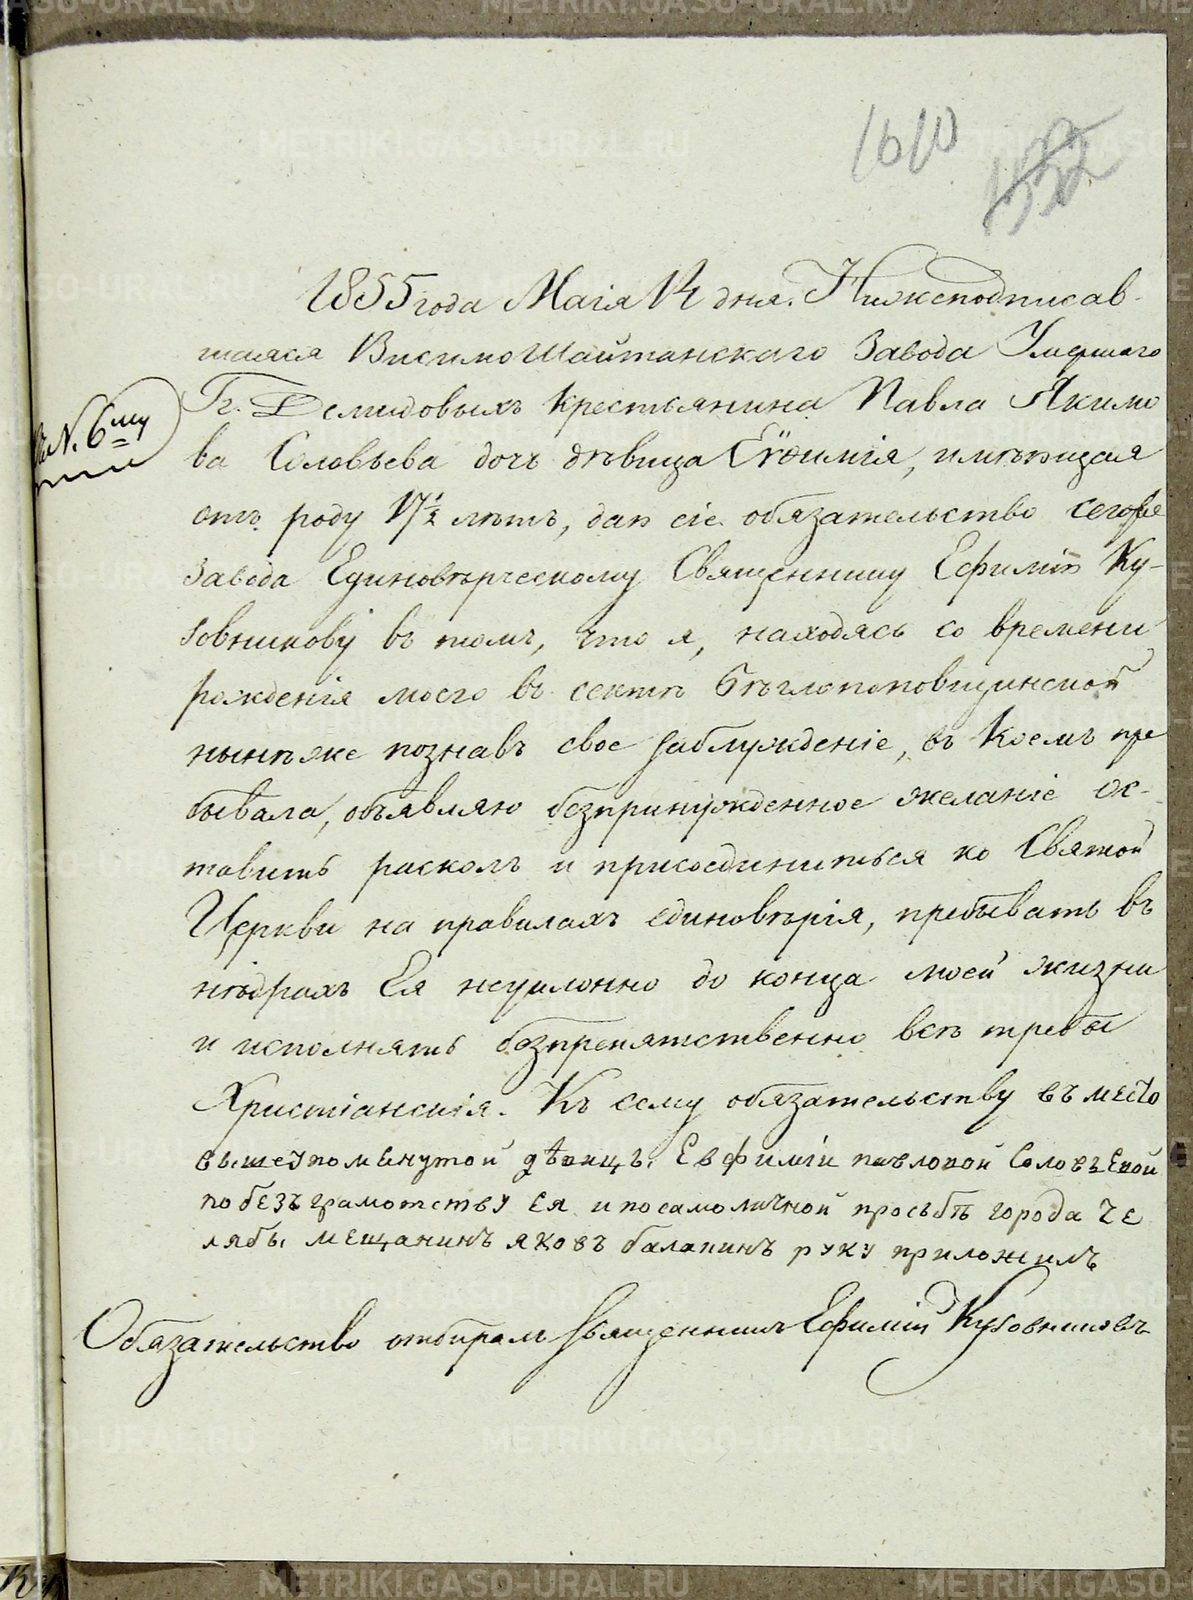 1610
132
1855 года Маія 14 дня. Нижеподписав-
шаяся Висимо Шайтанскаго Завода Умершаго
Гг. Демидовыхъ крестьянина Павла Якимо
ва Соловьева дочь дѣвица Еѵѳимія, имѣющая
къ N. 6му
отъ роду 17½ лѣтъ, даю сіе обязательство сегоже
Завода Единовѣрческому Священнику Ефимію Ку-
зовникову въ томъ, что я, находясь со времени
рожденія моего въ сектѣ бѣглопоповщинской
нынѣ же познавъ свое заблужденіе, въ коемъ пре
бывала, объявляю безпринужденное желаніе ос-
тавить расколъ и присоединиться ко Святой
Церкви на правилахъ единовѣрія, пребывать въ
нѣдрахъ Ея неуклонно до конца моей жизни
и исполнять безпрепятственно всѣ требы
Христіанскія. Къ сему обязательству въместо
вышеупомынутой дѣвицы Евфиміи павловой Соловъевой
по безъграмотству ея и посамоличной просьбѣ города Че
лябы мещанинъ яковъ балакинъ руку приложилъ
Обязательство отбиралъ Священникъ Ефимій Кузовниковъ
METRIKI.GASO-URAL.RU